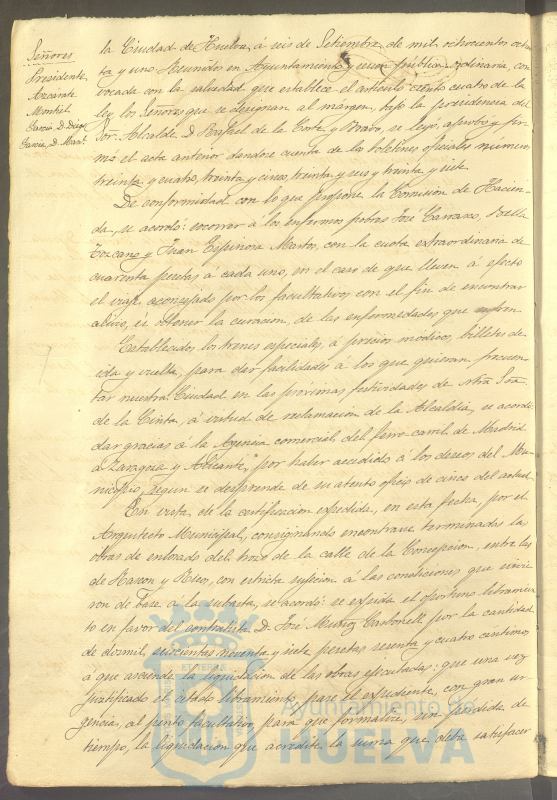 Señores
Presidente
Azcárate
Montiel
García, D. Diego
García, D. Man.l
la Ciudad de Huelva, á seis de Setiembre de mil ochocientos ochen-
ta y uno. Reunidos en Ayuntamiento y sesion pública ordinaria, con-
vocada con la salvedad que establece el artículo ciento cuatro de la
ley los Señores que se designan al margen, bajo la presidencia del
Sor. Alcalde D. Rafael de la Corte y Bravo, se leyó, aprobó y fir-
mó el acta anterior dandose cuenta de los Boletines oficiales números
treinta y cuatro, treinta y cinco, treinta y seis y treinta y siete.
De conformidad con lo que propone la Comision de Hacien-
da, se acordó: socorrer á los enfermos pobres José Carrasco, Bella
Tozcano y Juan Espinosa Martos, con la cuota extraordinaria de
cuarenta pesetas á cada uno, en el caso de que lleven á efecto
el viaje aconsejado por los facultativos con el fin de encontrar
alivio, ú obtener la curacion, de las enfermedades que sufren.
Establecidos los trenes especiales, á precios módicos, billetes de
ida y vuelta, para dar facilidades á los que quieran frecuen-
tar nuestra Ciudad en las próximas festividades de Ntra Sra
de la Cinta, á virtud de reclamacion de la Alcaldía, se acordó:
dar gracias á la Agencia comercial del ferro-carril de Madrid
á Zaragoza y Alicante, por haber accedido á los deseos del Mu-
nicipio, segun se desprende de su atento oficio de cinco del actual.
En vista de la certificacion expedida, en esta fecha, por el
Arquitecto Municipal, consignando encontrarse terminadas las
obras de enlosado del trozo de la calle de la Concepcion, entre las
de Rascon y Rico, con estricta sujecion á las condiciones que sirvie-
ron de base á la subasta, se acordó: se expida el oportuno libramien-
to en favor del contratista D. José Muñoz Carbonell por la cantidad
de dosmil, seiscientas noventa y siete pesetas sesenta y cuatro centimos
á que asciende la liquidacion de las obras ejecutadas: que una vez
justificado el citado libramiento pase el expediente, con gran ur-
gencia, al perito facultativo, para que formalice, sin perdida de
tiempo, la liquidacion que acredite la suma que deba satisfacer
Ayuntamiento de
HUELVA